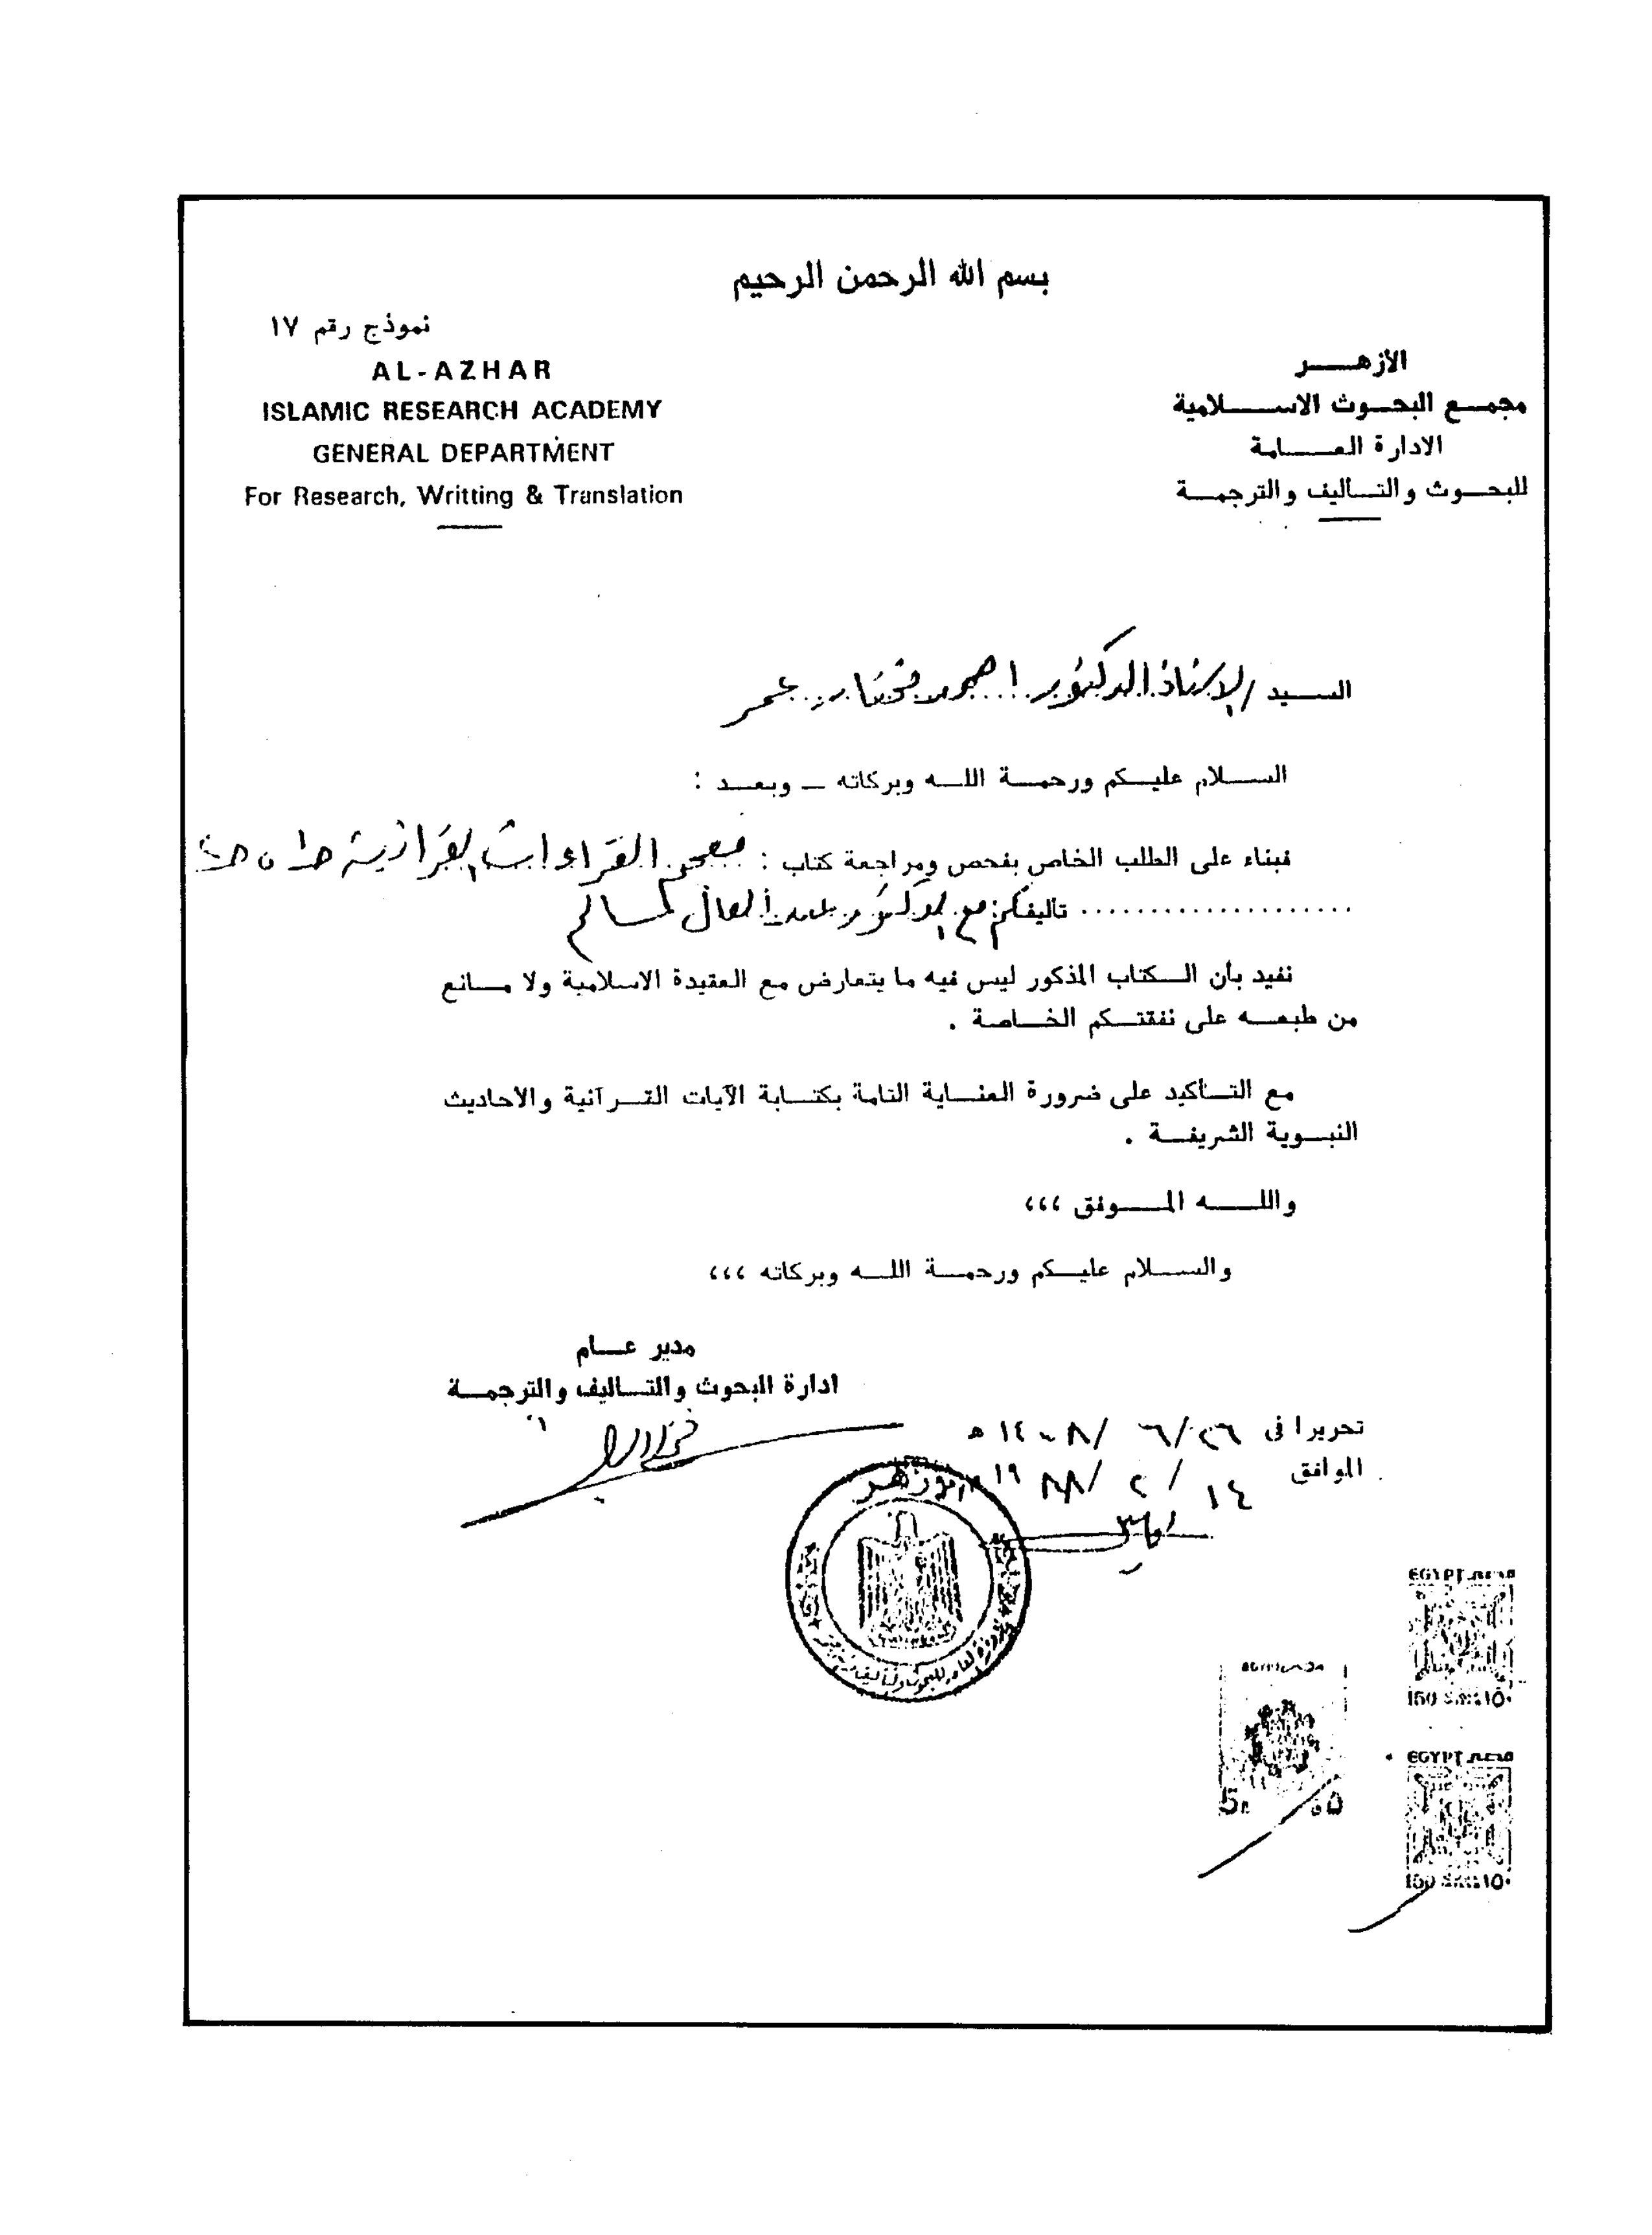 بسم الله الرحمن الرحيم
نموذج رقم ١٧
الأزهر
مجمع البحوث الاسلامية
الادارة العامة
للبحوث والتاليف والترجمة
AL-AZHAR
ISLAMIC RESEARCH ACADEMY
GENERAL DEPARTMENT
For Research, Writting & Translation
السيد / الاستاذ الدكتور احمد مختار عمر
السلام عليكم ورحمة الله وبركاته ـ وبعد :
فبناء على الطلب الخاص بفحص ومراجعة كتاب : معجم القراءات القرآنية
.................... تاليفكم مع الدكتور عبد العال سالم
نفيد بأن الكتاب المذكور ليس فيه ما يتعارض مع العقيدة الاسلامية ولا مانع
من طبعه على نفقتكم الخاصة .
مع التأكيد على ضرورة العناية التامة بكتابة الآيات القرآنية والاحاديث
النبوية الشريفة .
والله الموفق ،،،
والسلام عليكم ورحمة الله وبركاته ،،،
مدير عام
ادارة البحوث والتاليف والترجمة
تحريرا فى ٢٦/ ٦ /١٤٠٨ ه
الموافق ١٤ / ٢ /١٩٨٨ م
الأزهر
EGYPT مصر
150 ١٥٠
EGYPT مصر
150 ١٥٠